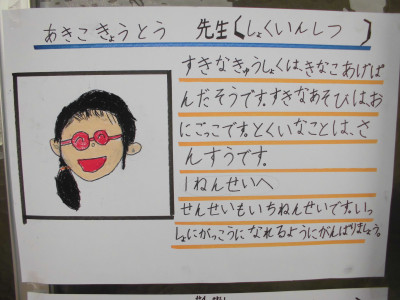 あきこきょうとう 先生(しょくいんしつ )
すきなきゅうしょくは、きなこあげぱ
んだそうです。すきなあそびは、お
にごっこです。とくいなことは、さ
んすうです。
1ねんせいへ
せんせいもいちねんせいです。いっ
しょにがっこうになれるようにがんばりましょう。